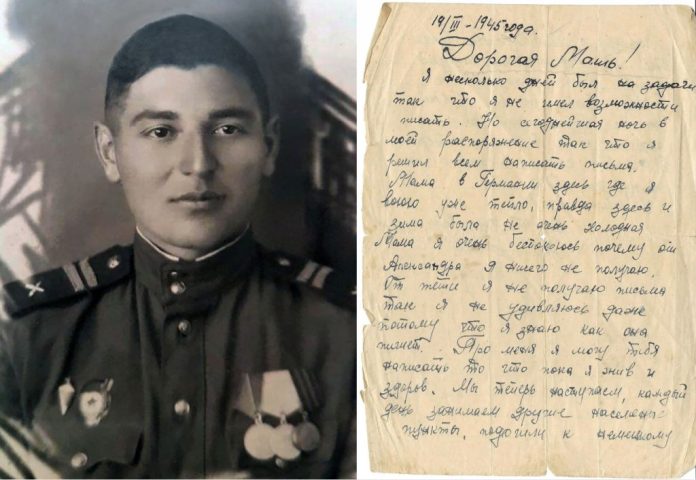 19/III-1945 года.
Дорогая Мать!
Я несколько дней был на задачи
так что я не имел возможности
писать. Но сегоднейшая ночь в
моей распоряжение так что я
решил всем написать письма.
Мама в Германии здесь где я
воюю уже тепло, правда здесь и
зима была не очень холодная
Мама я очень беспокоюсь почему от
Александра я ничего не получаю.
От тети я не получаю письма
так я не удивляюсь даже
потому что я знаю как она
пишет. Про меня я могу тебя
написать то что пока я жив и
здоров. Мы теперь наступаем, каждый
день занимаем другие населеные
пункты, подошли к немецкому